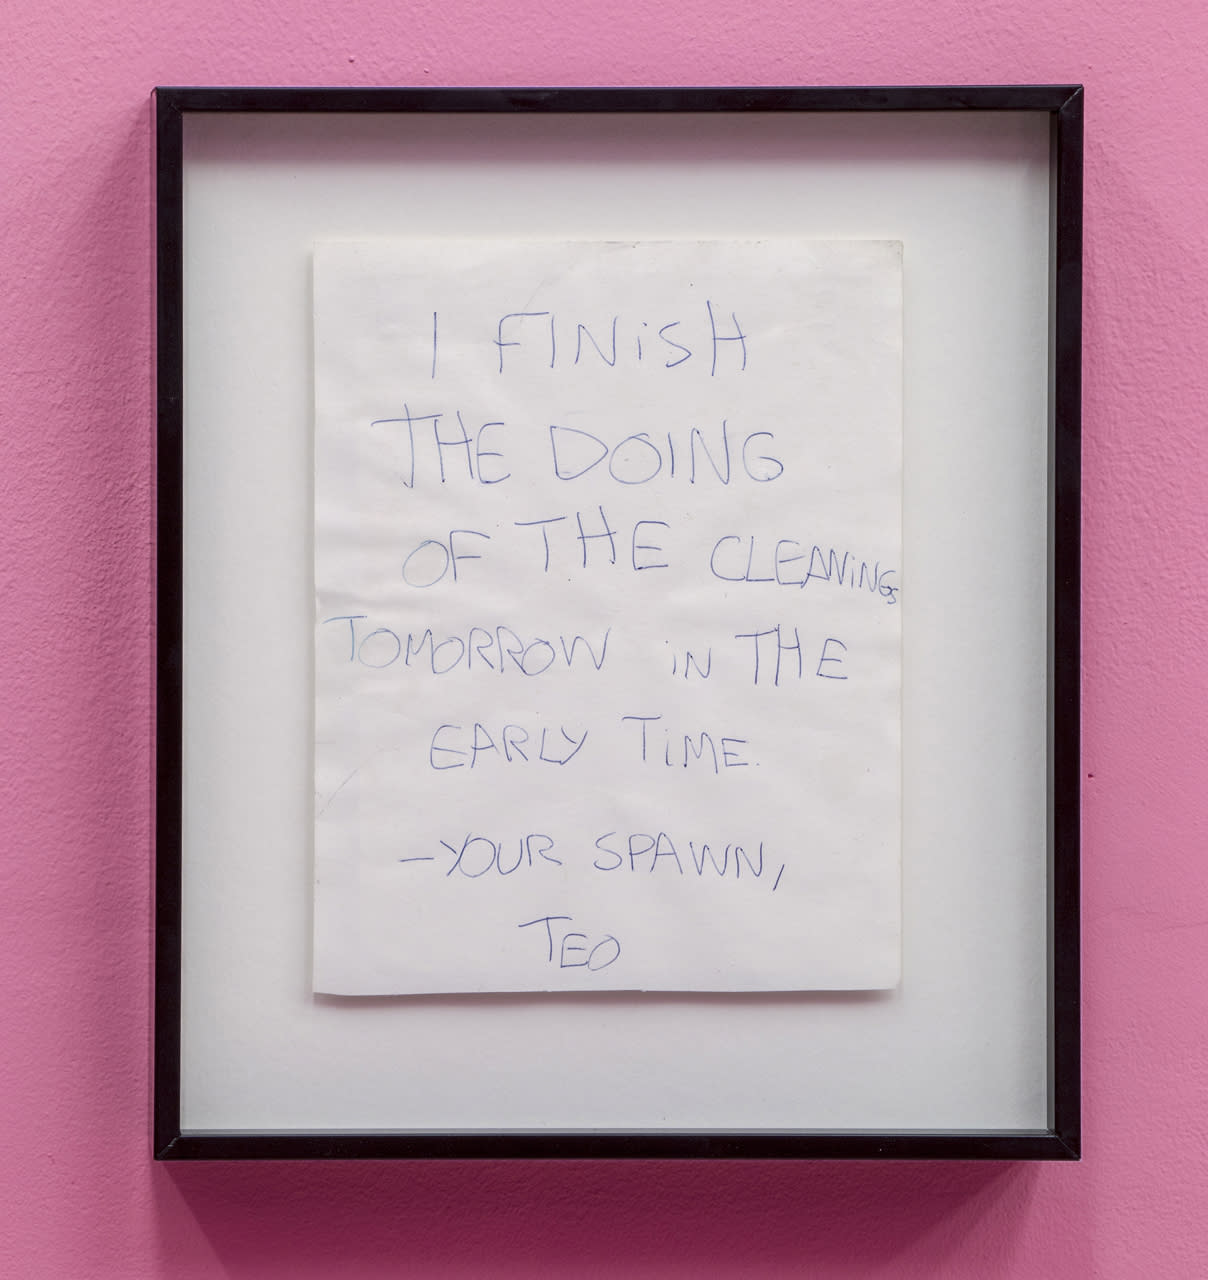 I FINiSH
THE DOING
OF THE CLEANiNGS
TOMORROW iN THE
EARLY TiME.
–YOUR SPAWN,
TEO